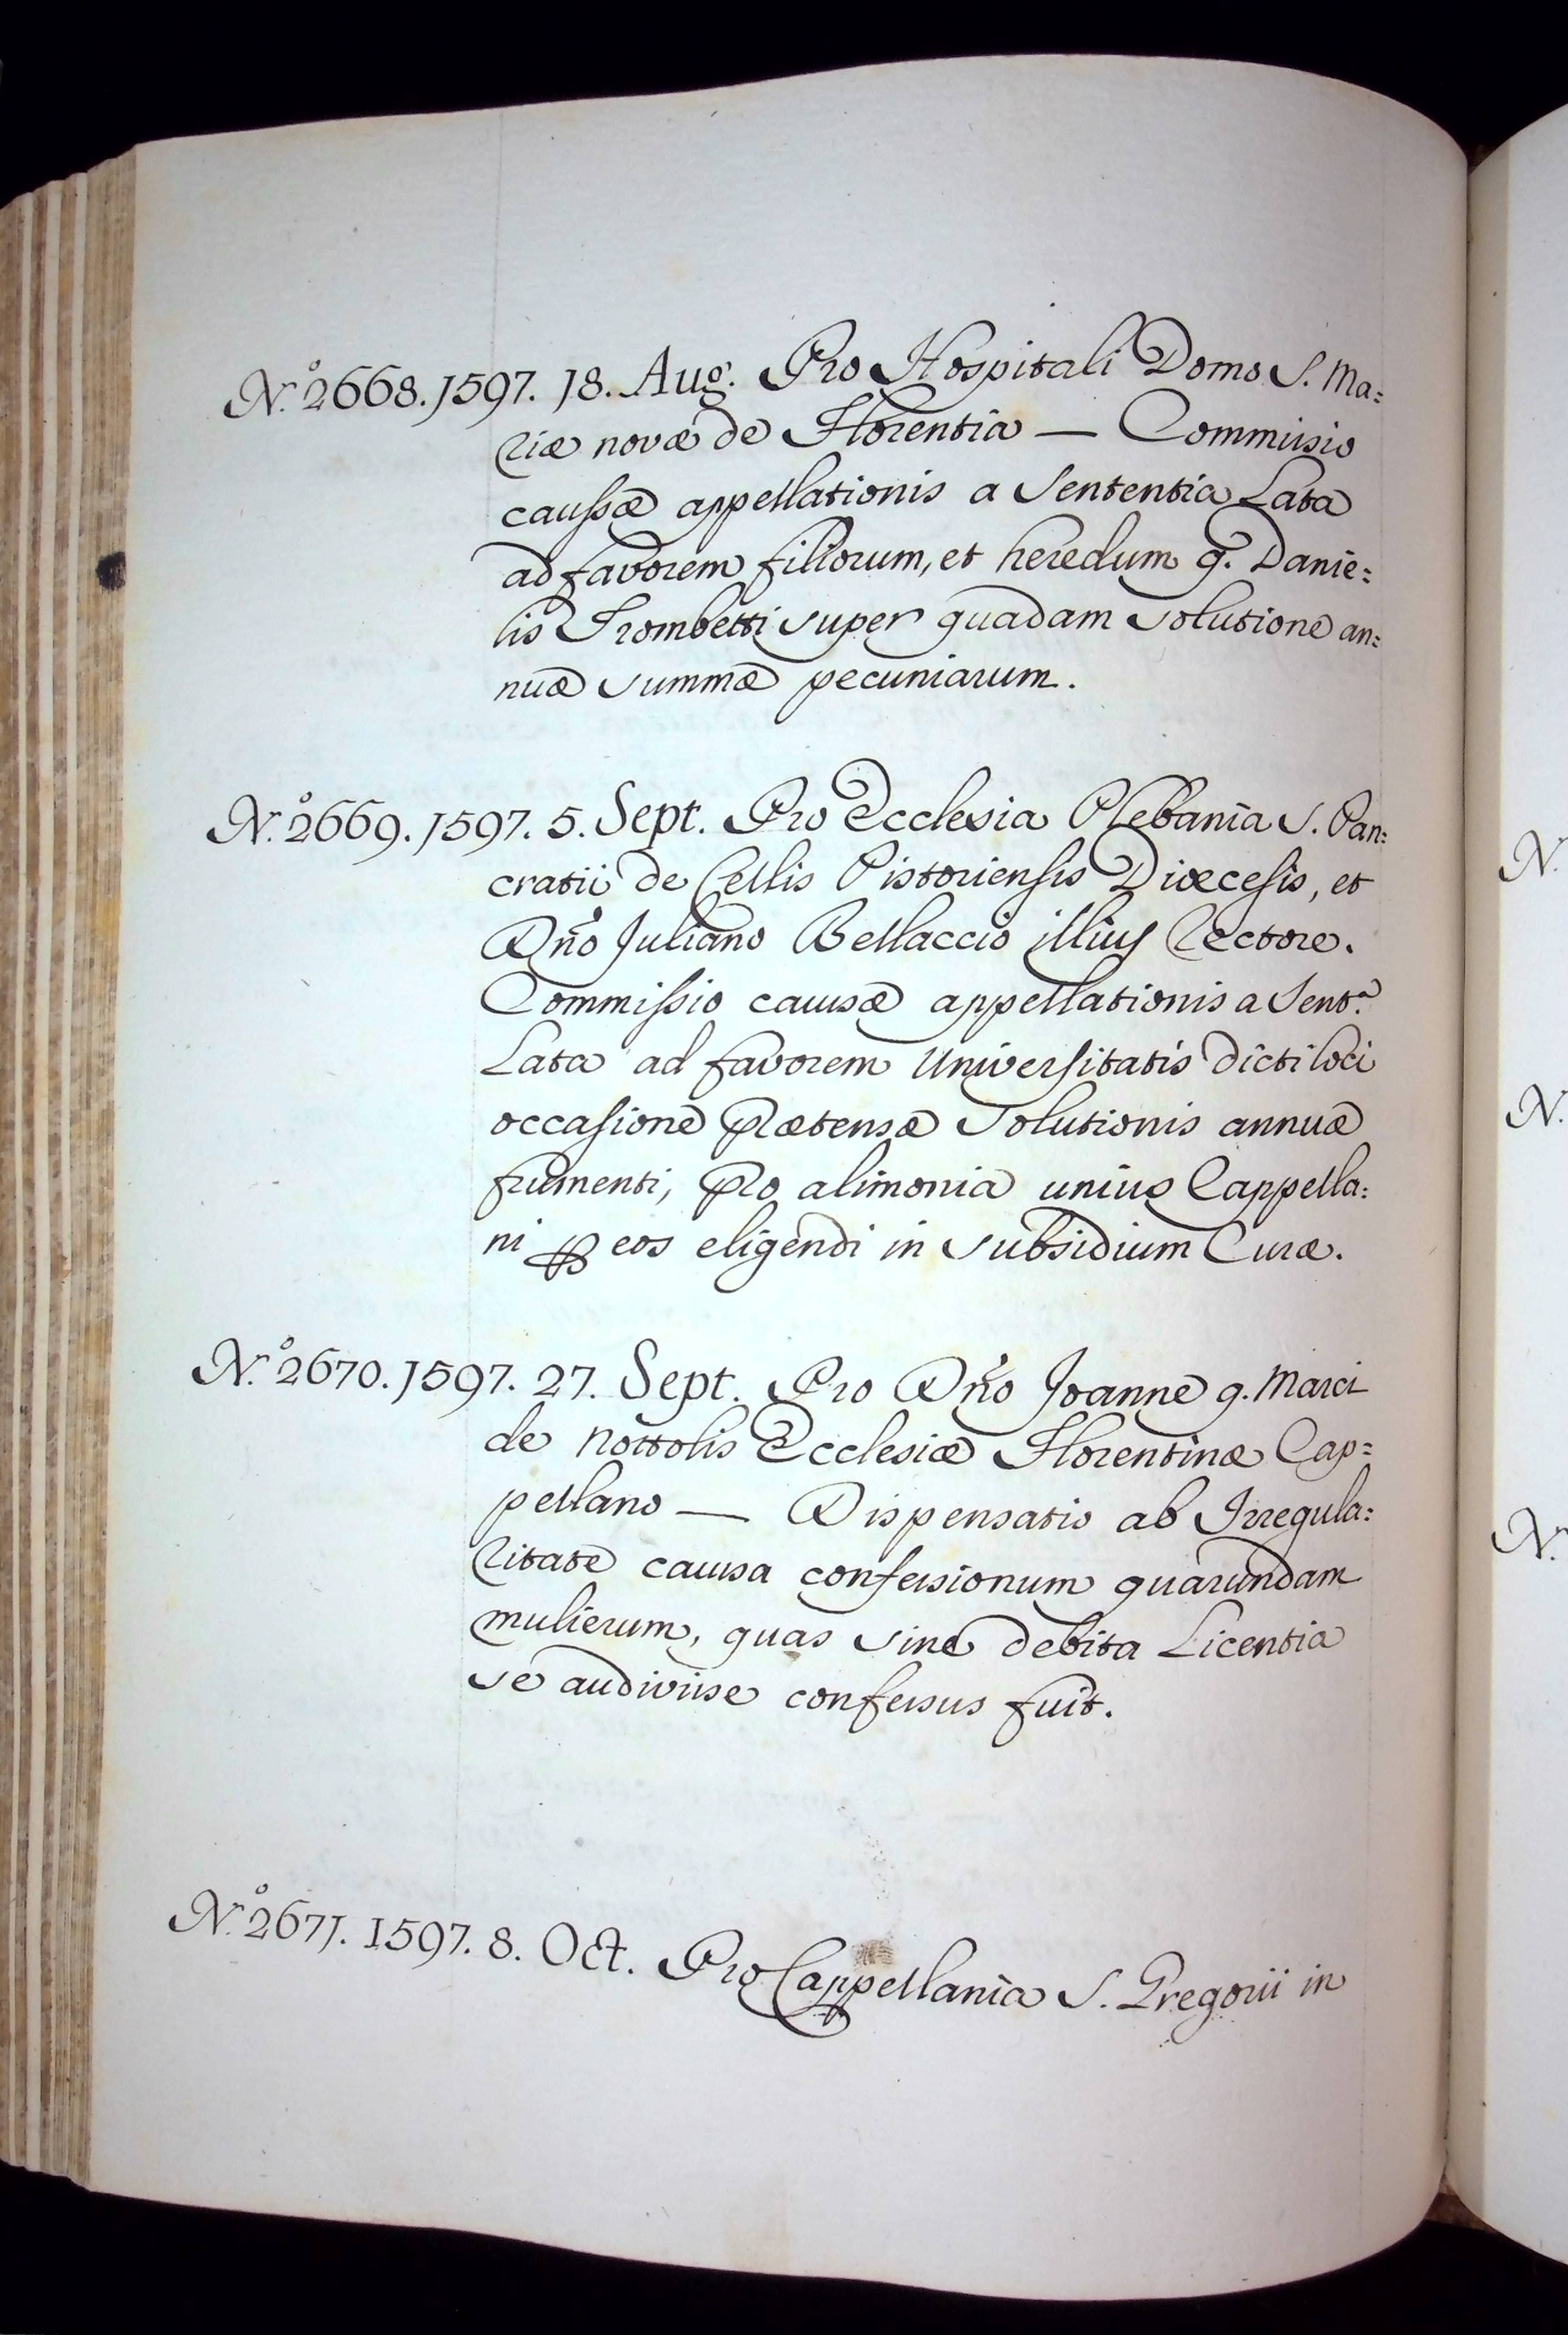 N.º 2668. 1597. 18. Aug. Pro Hospitali Domo S. Ma=
riæ novæ de Florentia — Commissio
caussæ appellationis a Sententia Lata
ad favorem filiorum, et heredum q. Danie=
lis Trombetti super quadam solutione an=
nuæ summæ pecuniarum.
N.º 2669. 1597. 5. Sept. Pro Ecclesia Plebania S. Pan=
cratii de Cellis Pistoriensis Diœcesis, et
Dño Juliano Bellaccio illius Rectore.
Commissio causæ appellationis a Sent.ª
Lata ad favorem Universitatis dicti loci
occasione prætensæ solutionis annuæ
frumenti, pro alimonia unius Cappella=
ni ꝑ eos eligendi in subsidium Curæ.
N.º 2670. 1597. 27. Sept. Pro Dño Joanne q. Marci
de Nottolis Ecclesiæ Florentinæ Cap=
pellano — Dispensatio ab Irregula=
ritate causa confessionum quarundam
mulierum, quas sine debita Licentia
se audivisse confessus fuit.
N.º 2671. 1597. 8. Oct. Pro Cappellania S. Gregorii in
N.
N.
N.